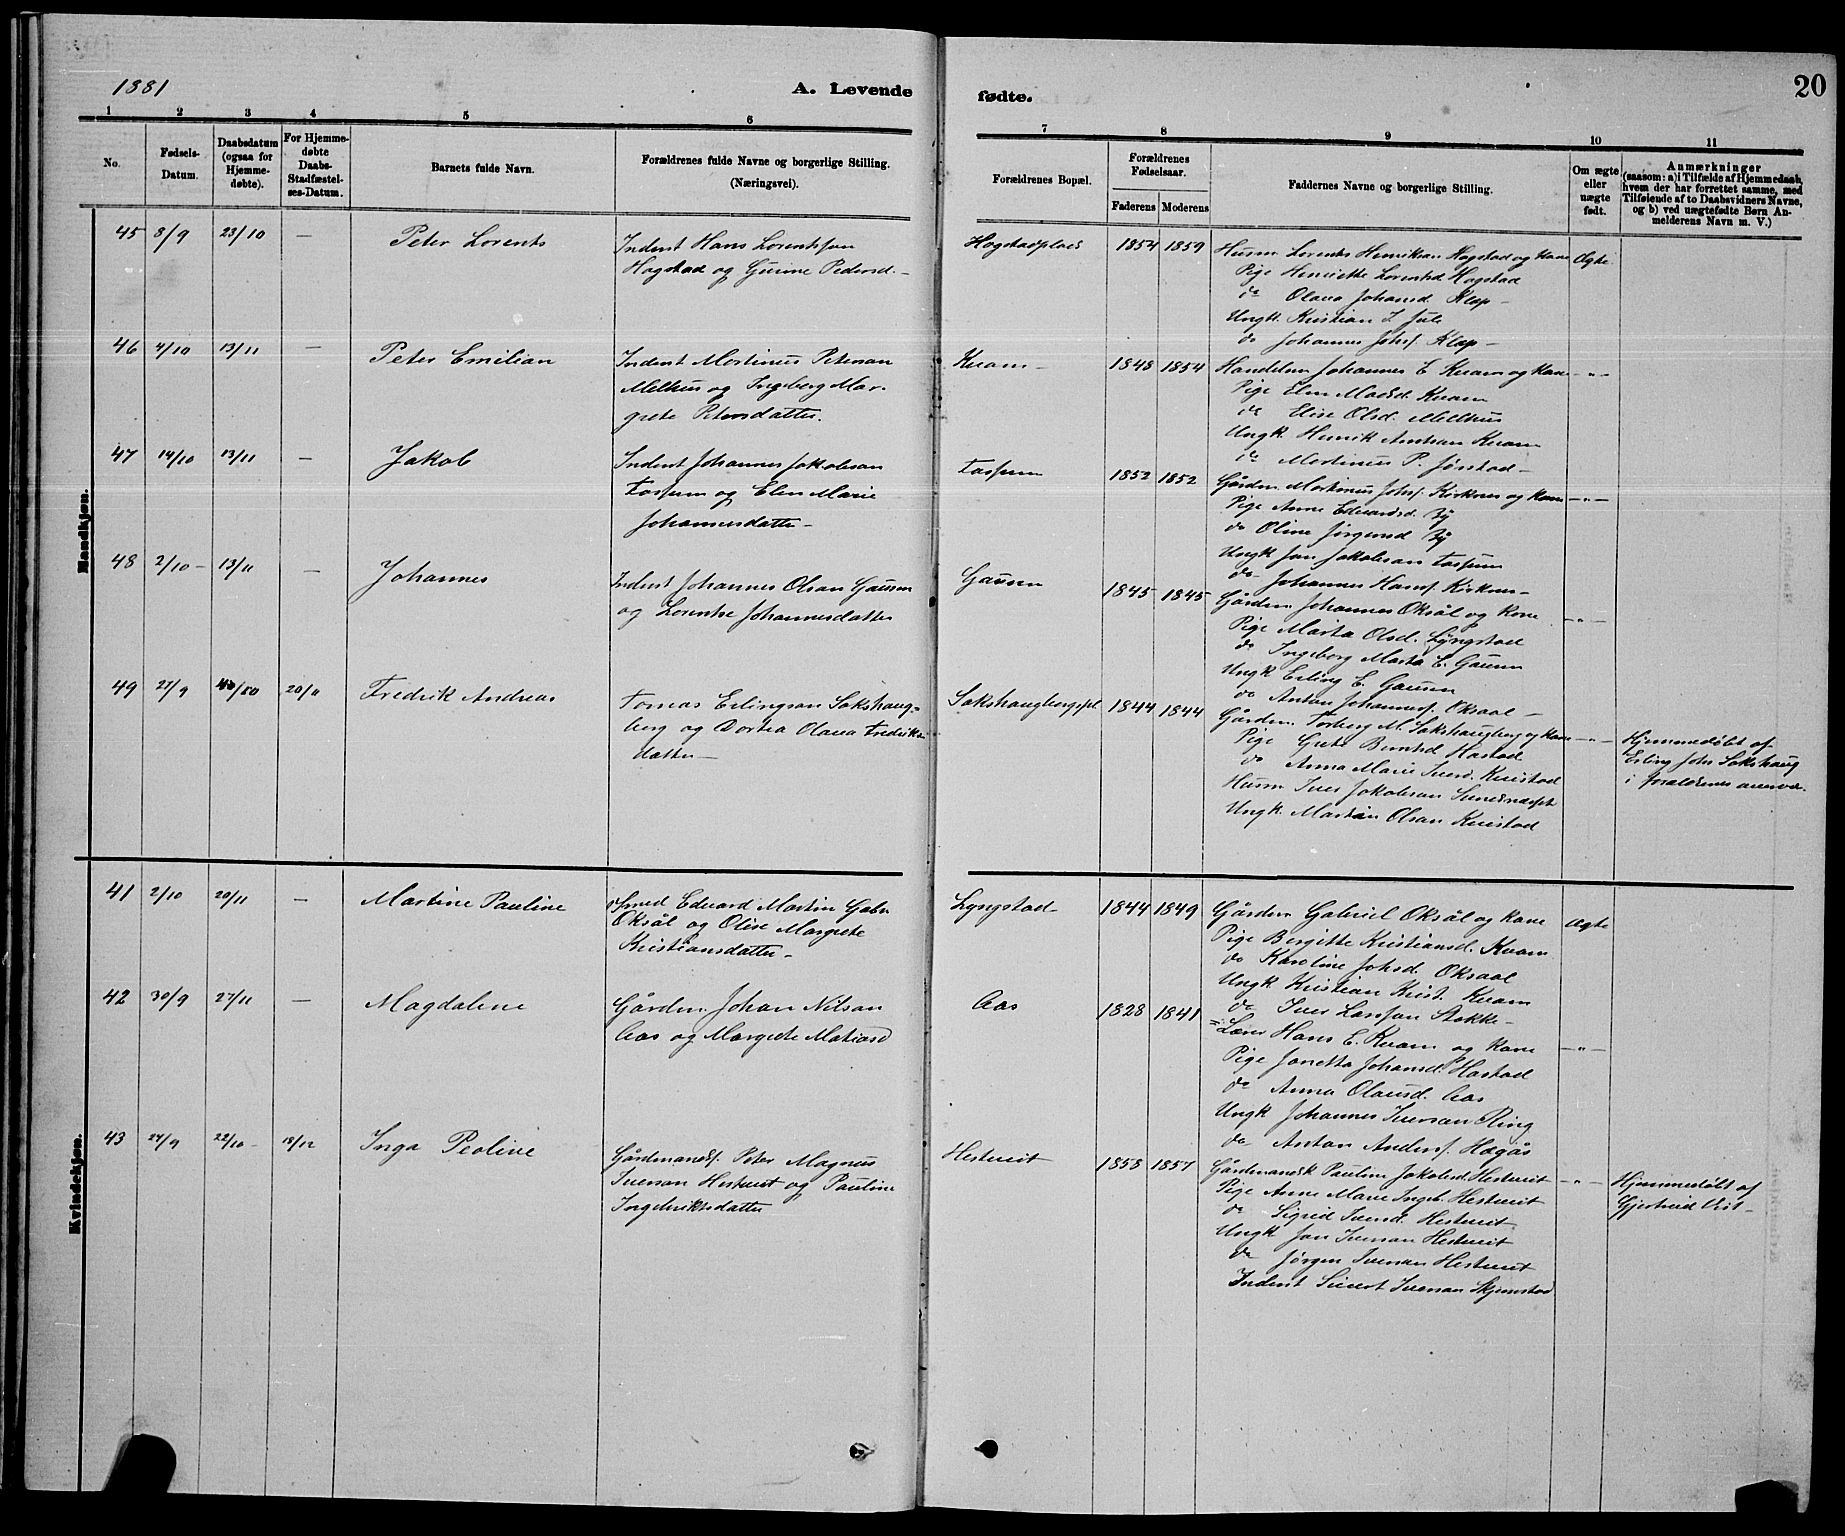 1881
A. Levende
fødte.
20
1 2 3 4 5 6
7 8 9 10 11
No.
Fødsels-Datum.
Daabsdatum (ogsaa for Hjemmedøbte).
For Hjemmedøbte Daabs-Stadfæstelses-Datum.
Barnets fulde Navn.
Forældrenes fulde Navne og borgerlige Stilling.
(Næringsvei).
Forældrenes Bopæl.
Forældrenes Fødselsaar.
Faderens Moderens
Faddernes Navne og borgerlige Stilling.
Om ægte eller uægte født.
Anmærkninger
(saasom: a) i Tilfælde af Hjemmedaab,
hvem der har forrettet samme, med
Tilføiende af to Daabsvidners Navne,
og b) ved uægtefødte Børn An-
melderens Navn m. V.)
Mandkjøn.
45 8/9 23/10 — Peter Lorents
Inderst Hans Lorentssen
Hogstad og Gurine Pedersd. —
Hogstadplads 1854 1859
Husm Lorents Henriksen Hogstad og Kone Ægte
Pige Henriette Lorentsd Hogstad
do Olava Johansd. Klop —
Ungk. Kristian I Jule
do Johannes Johs. Klop —
46 4/10 13/11 — Peter Emilian
Inderst Mortinus Peterson
Melhus og Ingeborg Mar-
grete Petersdatter.
Kvam — 1848 1854
Handelsm Johannes E Kvam og Kone — " —
Pige Elen Madsd. Kvam
do Elise Olsd. Melhus
Ungk. Henrik Kvam
do Mortinus P. Jørstad —
47 14/10 13/11 — Jakob
Inderst Johannes Jakobson
Fossum og Elen Marie
Johannesdatter —
Fossum 1852 1852
Gårdm. Mortinus Johs. Kirknes og Kone — " —
Pige Anne Edvardsd. By
do Oline Jørgensd By
Ungk Jon Jakobson Fossum
do Johannes Hans. Kirknes —
48 2/10 — 13/11 — Johannes
Inderst Johannes Olson Gausen
og Lorentse Johannesdatter
Gausen 1845 1845
Gårdm. Johannes Oksål og Kone — " —
Pige Marta Olsd. Lyngstad
do Ingeborg Marta E. Gausen
Ungk Erling E. Gausen
do Anton Johannes. Oksaal —
49 27/9 20/11 Fredrik Andreas
Tomas Erlingson Sakshaug-
berg og Dortea Olava Fredriks
datter —
Sakshaugbergpl 1844 1844
Gårdm. Torberg M. Sakshaugberg og Kone — " —
Pige Grete Berntsd Hastad
do Anna Marie Iversd. Kvistad
Husm Iver Jakobson
Ungk. Martin Olson Kvistad
Hjemmedøbt af
Erling Johs Sakshaug
i foraldrenes
Kvindekjøn.
41 2/10 20/11 — Martine Pauline
Smed Edvard Martin Gabr
Oksål og Olise Margrete
Kristiansdatter —
Lyngstad 1844 1849
Gårdm Gabriel Oksål og Kone Ægte
Pige Birgitte Kristiansd. Kvam
do Karoline Johsd. Oksaal
Ungk Kristian Krist. Kvam
do Iver Larssen Stokke —
42 30/9 27/11 — Magdalene
Gårdm. Johan Nilson
Aas og Margrete Matiasd
Aas 1828 1841
Lærer Hans E. Kvam og Kone — " —
Pige Jonetta Johansd. Hastad
do Anna Olausd. Aas
Ungk Johannes Iverson Ring
do Anton Anders. Hegås
43 27/9 22/10 — 18/12 Inga Peoline
Gårdmands. Peter Magnus
Iverson Hestveit og Pauline
Ingebriktsdatter
Hestveit 1858 1857
Gårdmandsk Pauline Jakobsd. Hestveit — " —
Pige Anne Marie Ingeb. Hestveit
do Sigrid Iversd. Hestveit
Ungk Jon Iverson Hestveit
do Jørgen Iverson Hestveit
Inderst Sivert Iverson Skjemstad
Hjemmedøbt af